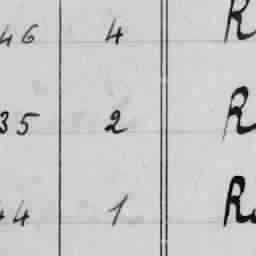 46 4 R
35 2 R
44 1 R